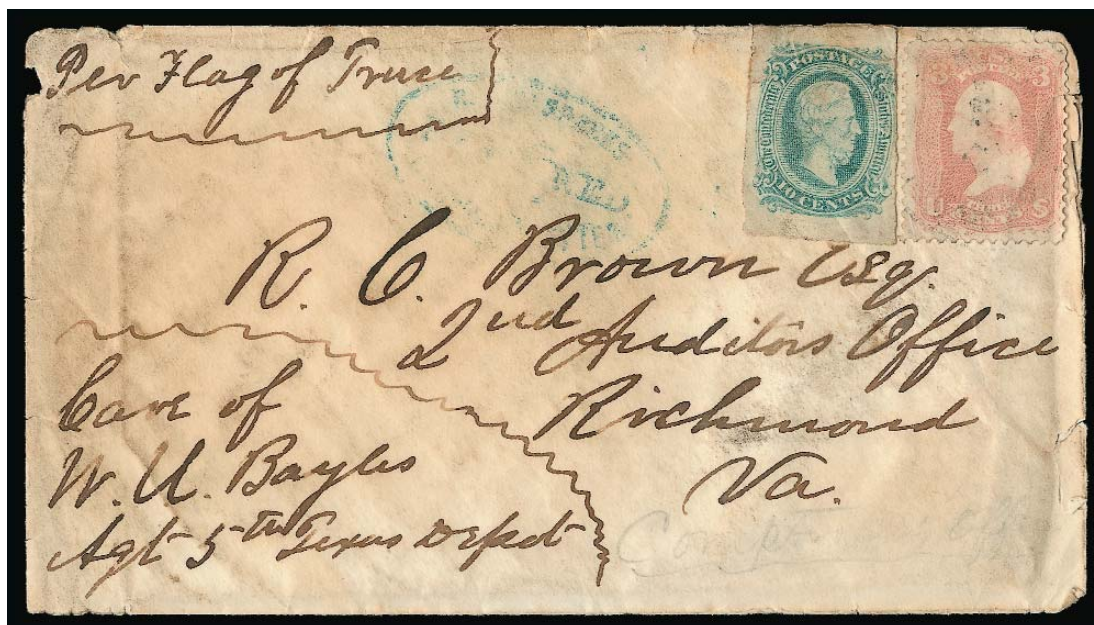 Per Flag of Truce
POSTAGE
The Confederate States of America
10 CENTS
3 3
U S
R. C. Brown Esq.
2nd Auditors Office
Richmond
Va.
Care of
W. U. Bayles
Agt 5th Texas Depot